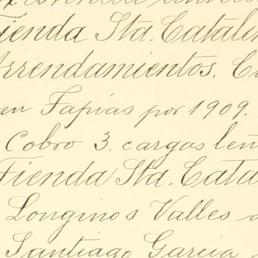 Tienda Sta. Catalin
Arrendamientos. C
en Tapias por 1909.
Cobro 3. cargas leñ
Tienda Sta. Cata
Longinos Valles
Santiago Garcia